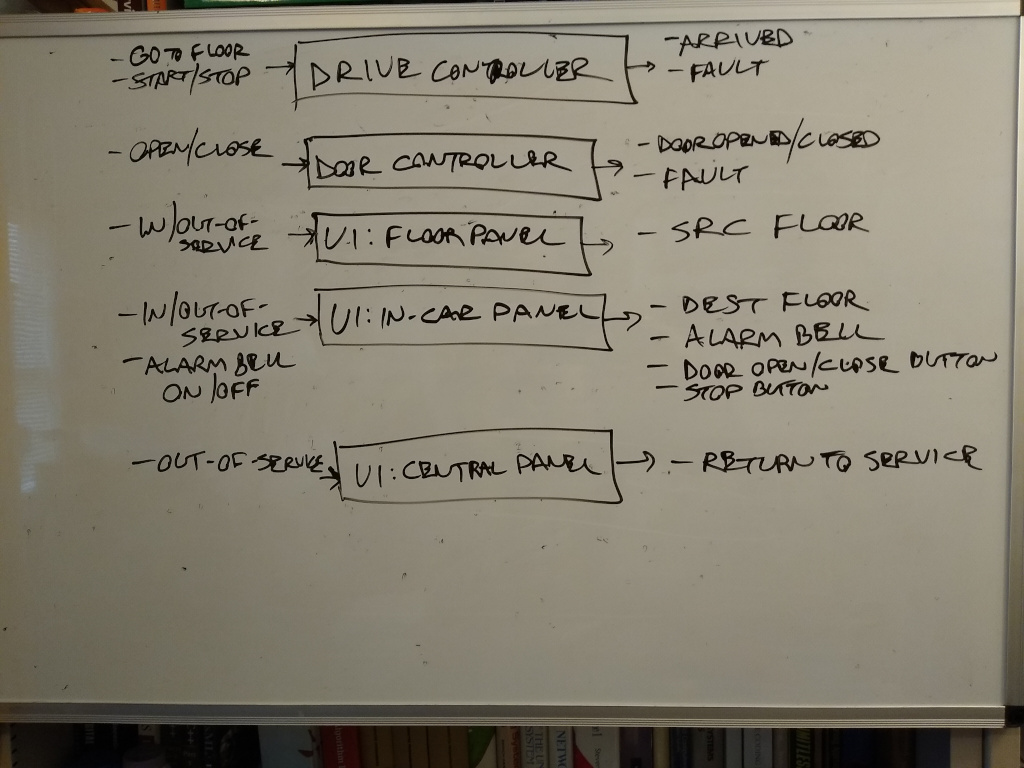 - GO TO FLOOR
- START/STOP
DRIVE CONTROLLER
- ARRIVED
- FAULT
- OPEN/CLOSE
DOOR CONTROLLER
- DOOR OPENED/CLOSED
- FAULT
- IN/OUT-OF-
SERVICE
UI: FLOOR PANEL
- SRC FLOOR
- IN/OUT-OF-
SERVICE
- ALARM BELL
ON/OFF
UI: IN-CAR PANEL
- DEST FLOOR
- ALARM BELL
- DOOR OPEN/CLOSE BUTTON
- STOP BUTTON
- OUT-OF-SERVICE
UI: CENTRAL PANEL
- RETURN TO SERVICE